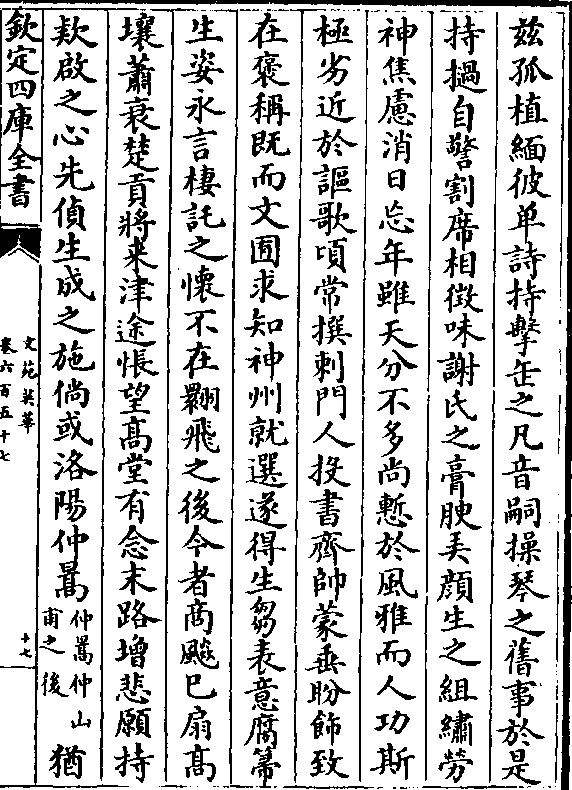 茲孤植緬彼单詩持擊缶之凡音嗣操琴之舊事於是
持撾自警割席相徵味謝氏之膏腴弄顔生之組繡勞
神焦慮消日忘年雖天分不多尚慙於風雅而人功斯
極劣近於謳歌頃常撰刺門人投書齊帥蒙垂盼飾致
在褒稱既而文圃求知神州就選遂得生芻表意腐帚
生姿永言棲託之懷不在翾飛之後今者商飈巳扇高
壤蕭衰楚貢將来津途悵望髙堂有念末路增悲願持
欵啟之心先偵生成之施倘或洛陽仲暠仲暠仲山甫之後猶
欽定四庫全書
文苑英華
卷六百五十七
十七